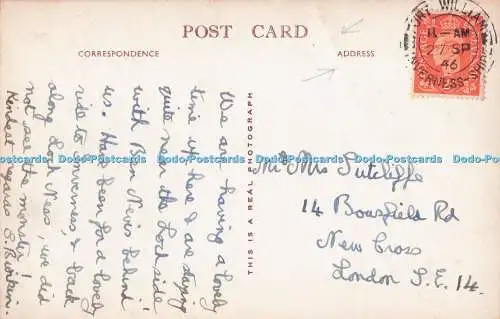 POST CARD
CORRESPONDENCE
ADDRESS
FORT WILLIAM
11-AM
27 SP
46
INVERNESS-SHIRE
We are having a lovely
time up here & are staying
quite near the Loch side
with Ben Nevis behind
us. Have been for a lovely
ride to Inverness, & back
along Loch Ness, we did
not see the monster!
Kindest regards E.
THIS IS A REAL PHOTOGRAPH
Mr & Mrs Sutcliffe
14 Bousfield Rd
New Cross
London S.E. 14.
Dodo-Postcards Dodo-Postcards Dodo-Postcards Dodo-Postcards Dodo-Postcards Dodo-Postcards